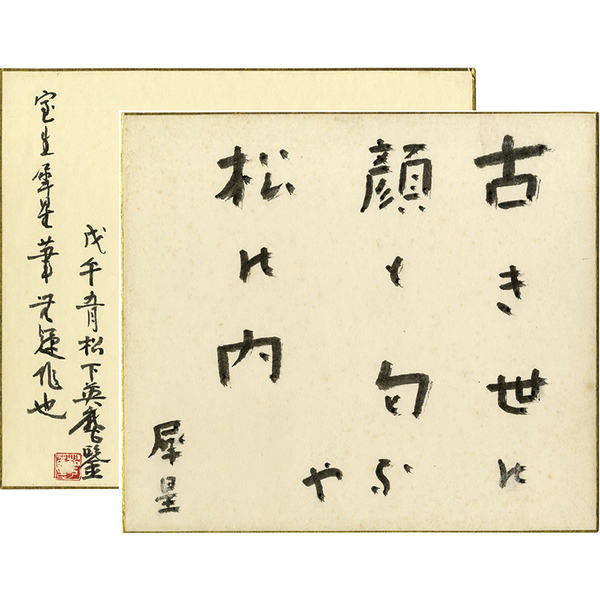 古き世の
顔も匂ふ
や
松の内
犀星
戊午 松下英麿鑒
室生犀星筆无疑作也